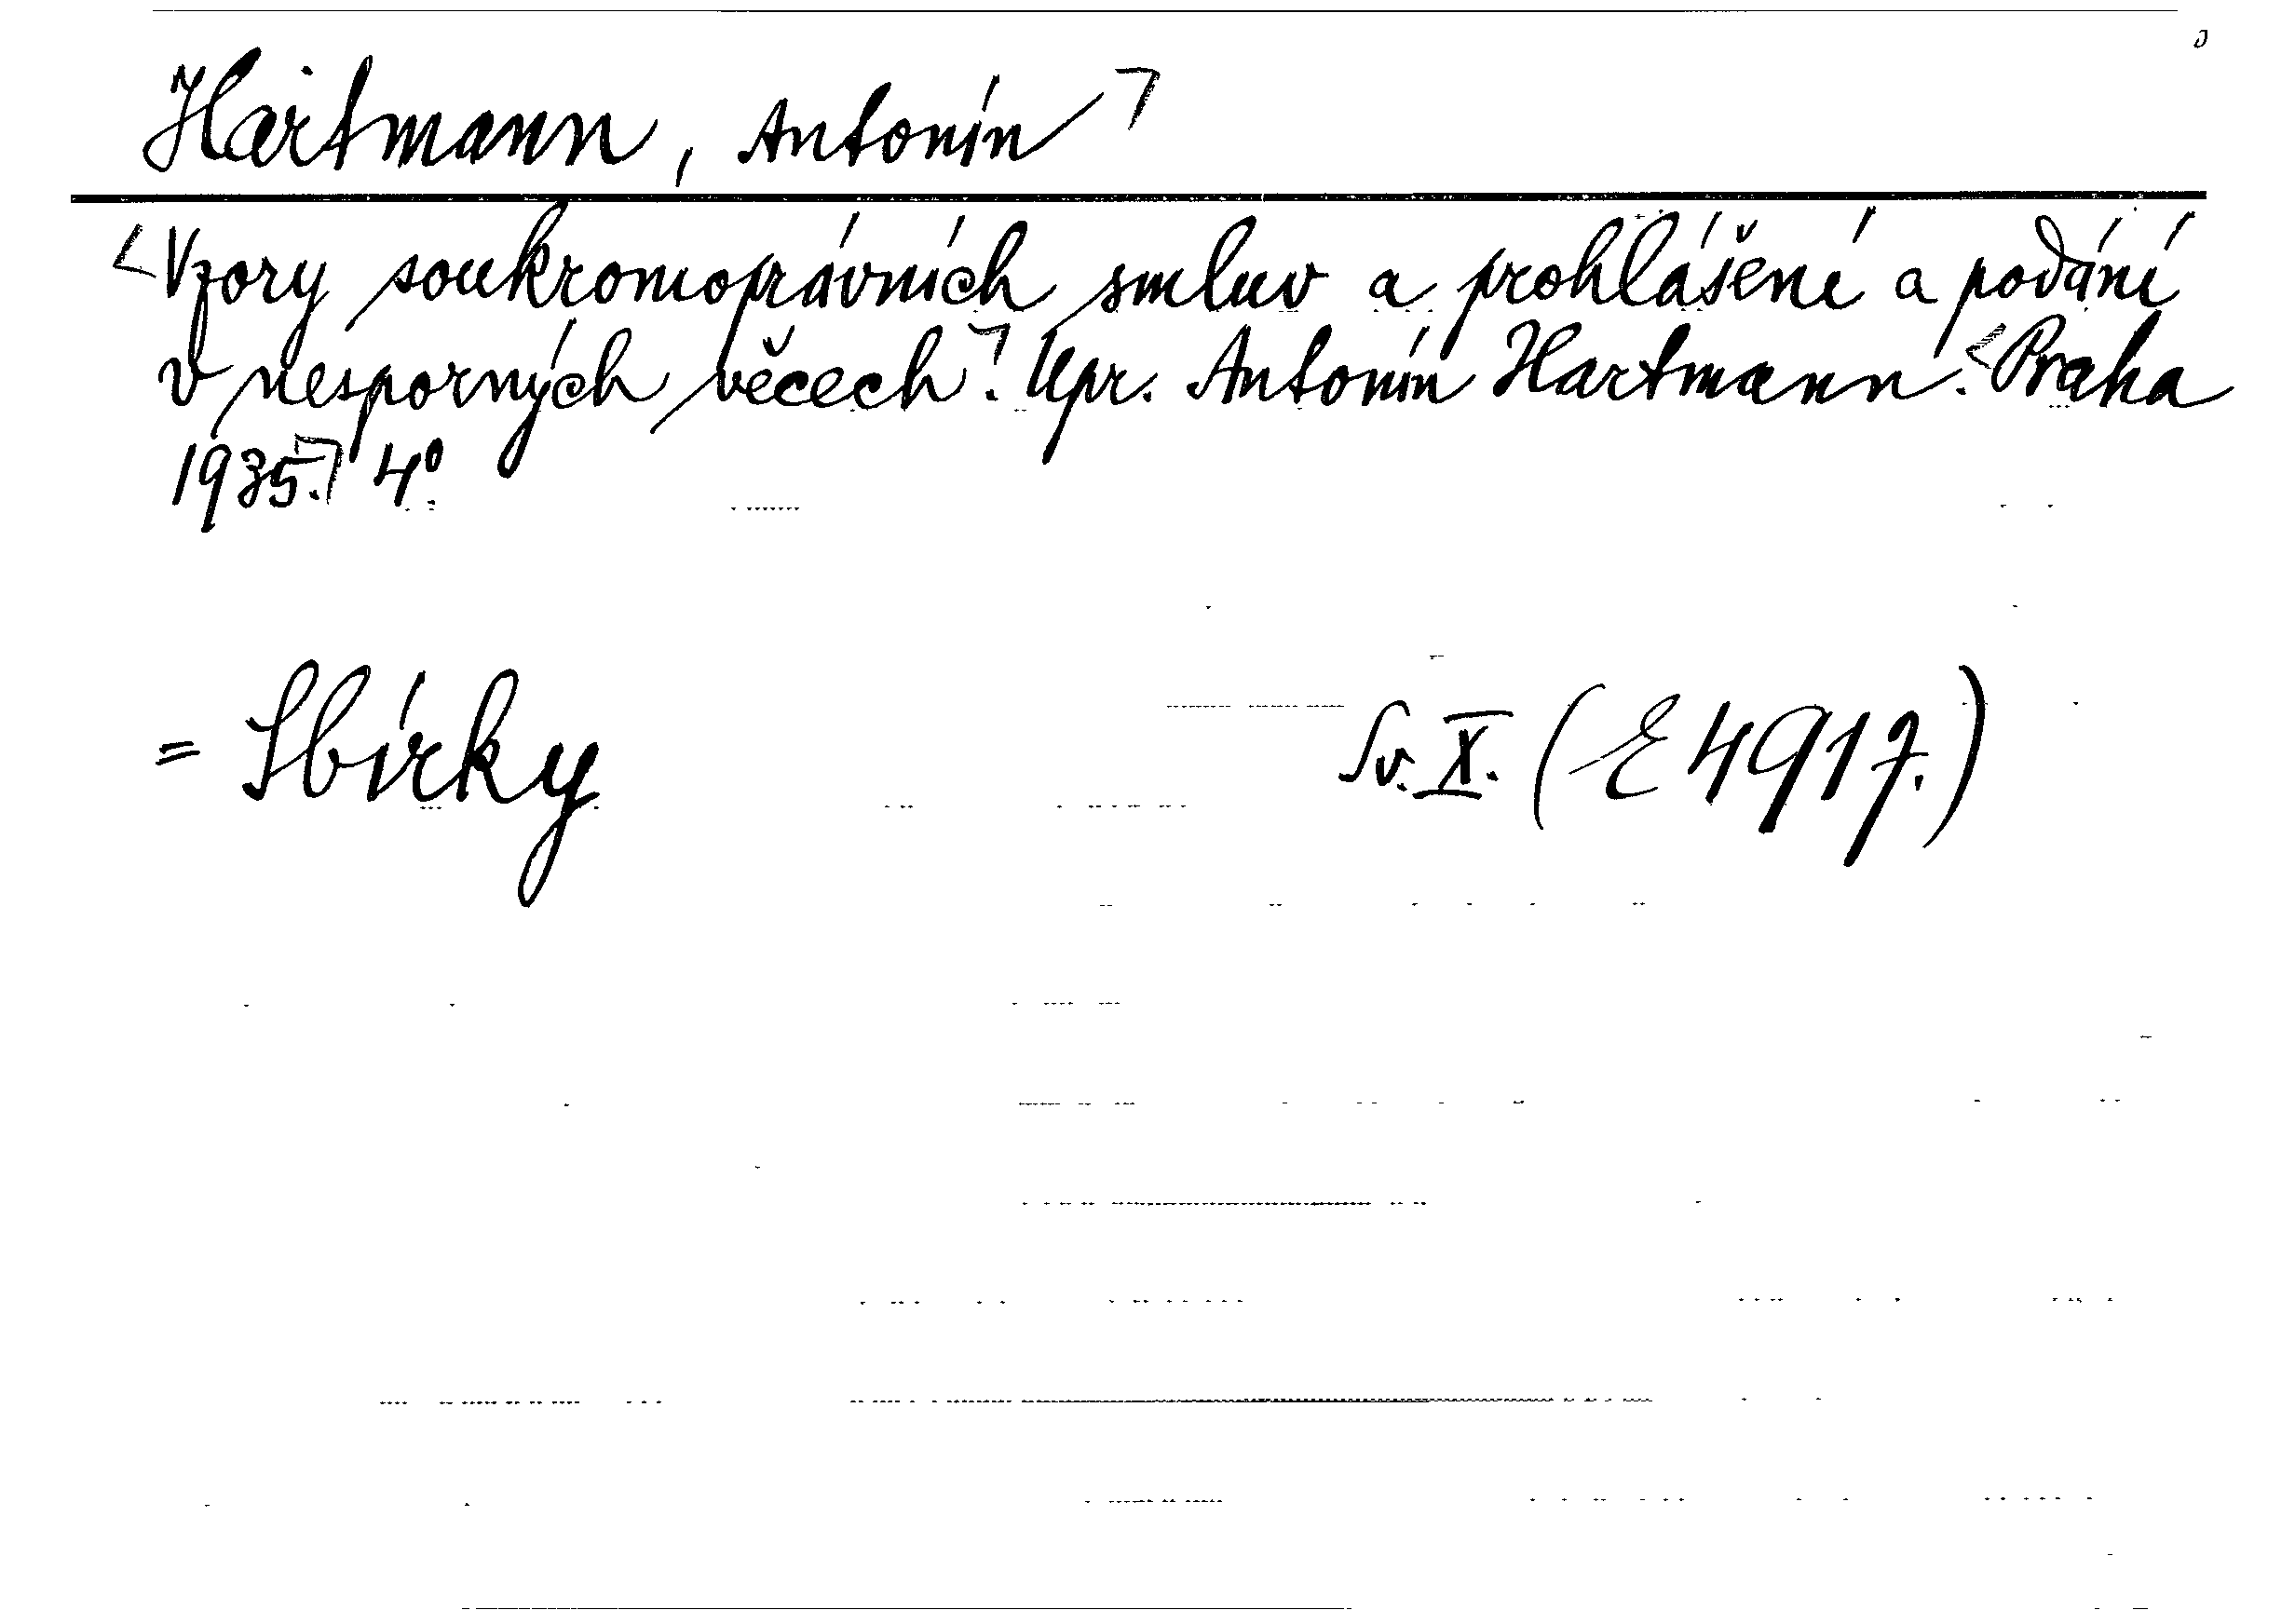 Hartmann, Antonín
Vzory soukromoprávních smluv a prohlášení a podání
v nesporných věcech. Upr. Antonín Hartmann. Praha
1935. 4°
= Sbírky Sv. X. (E 4917.)